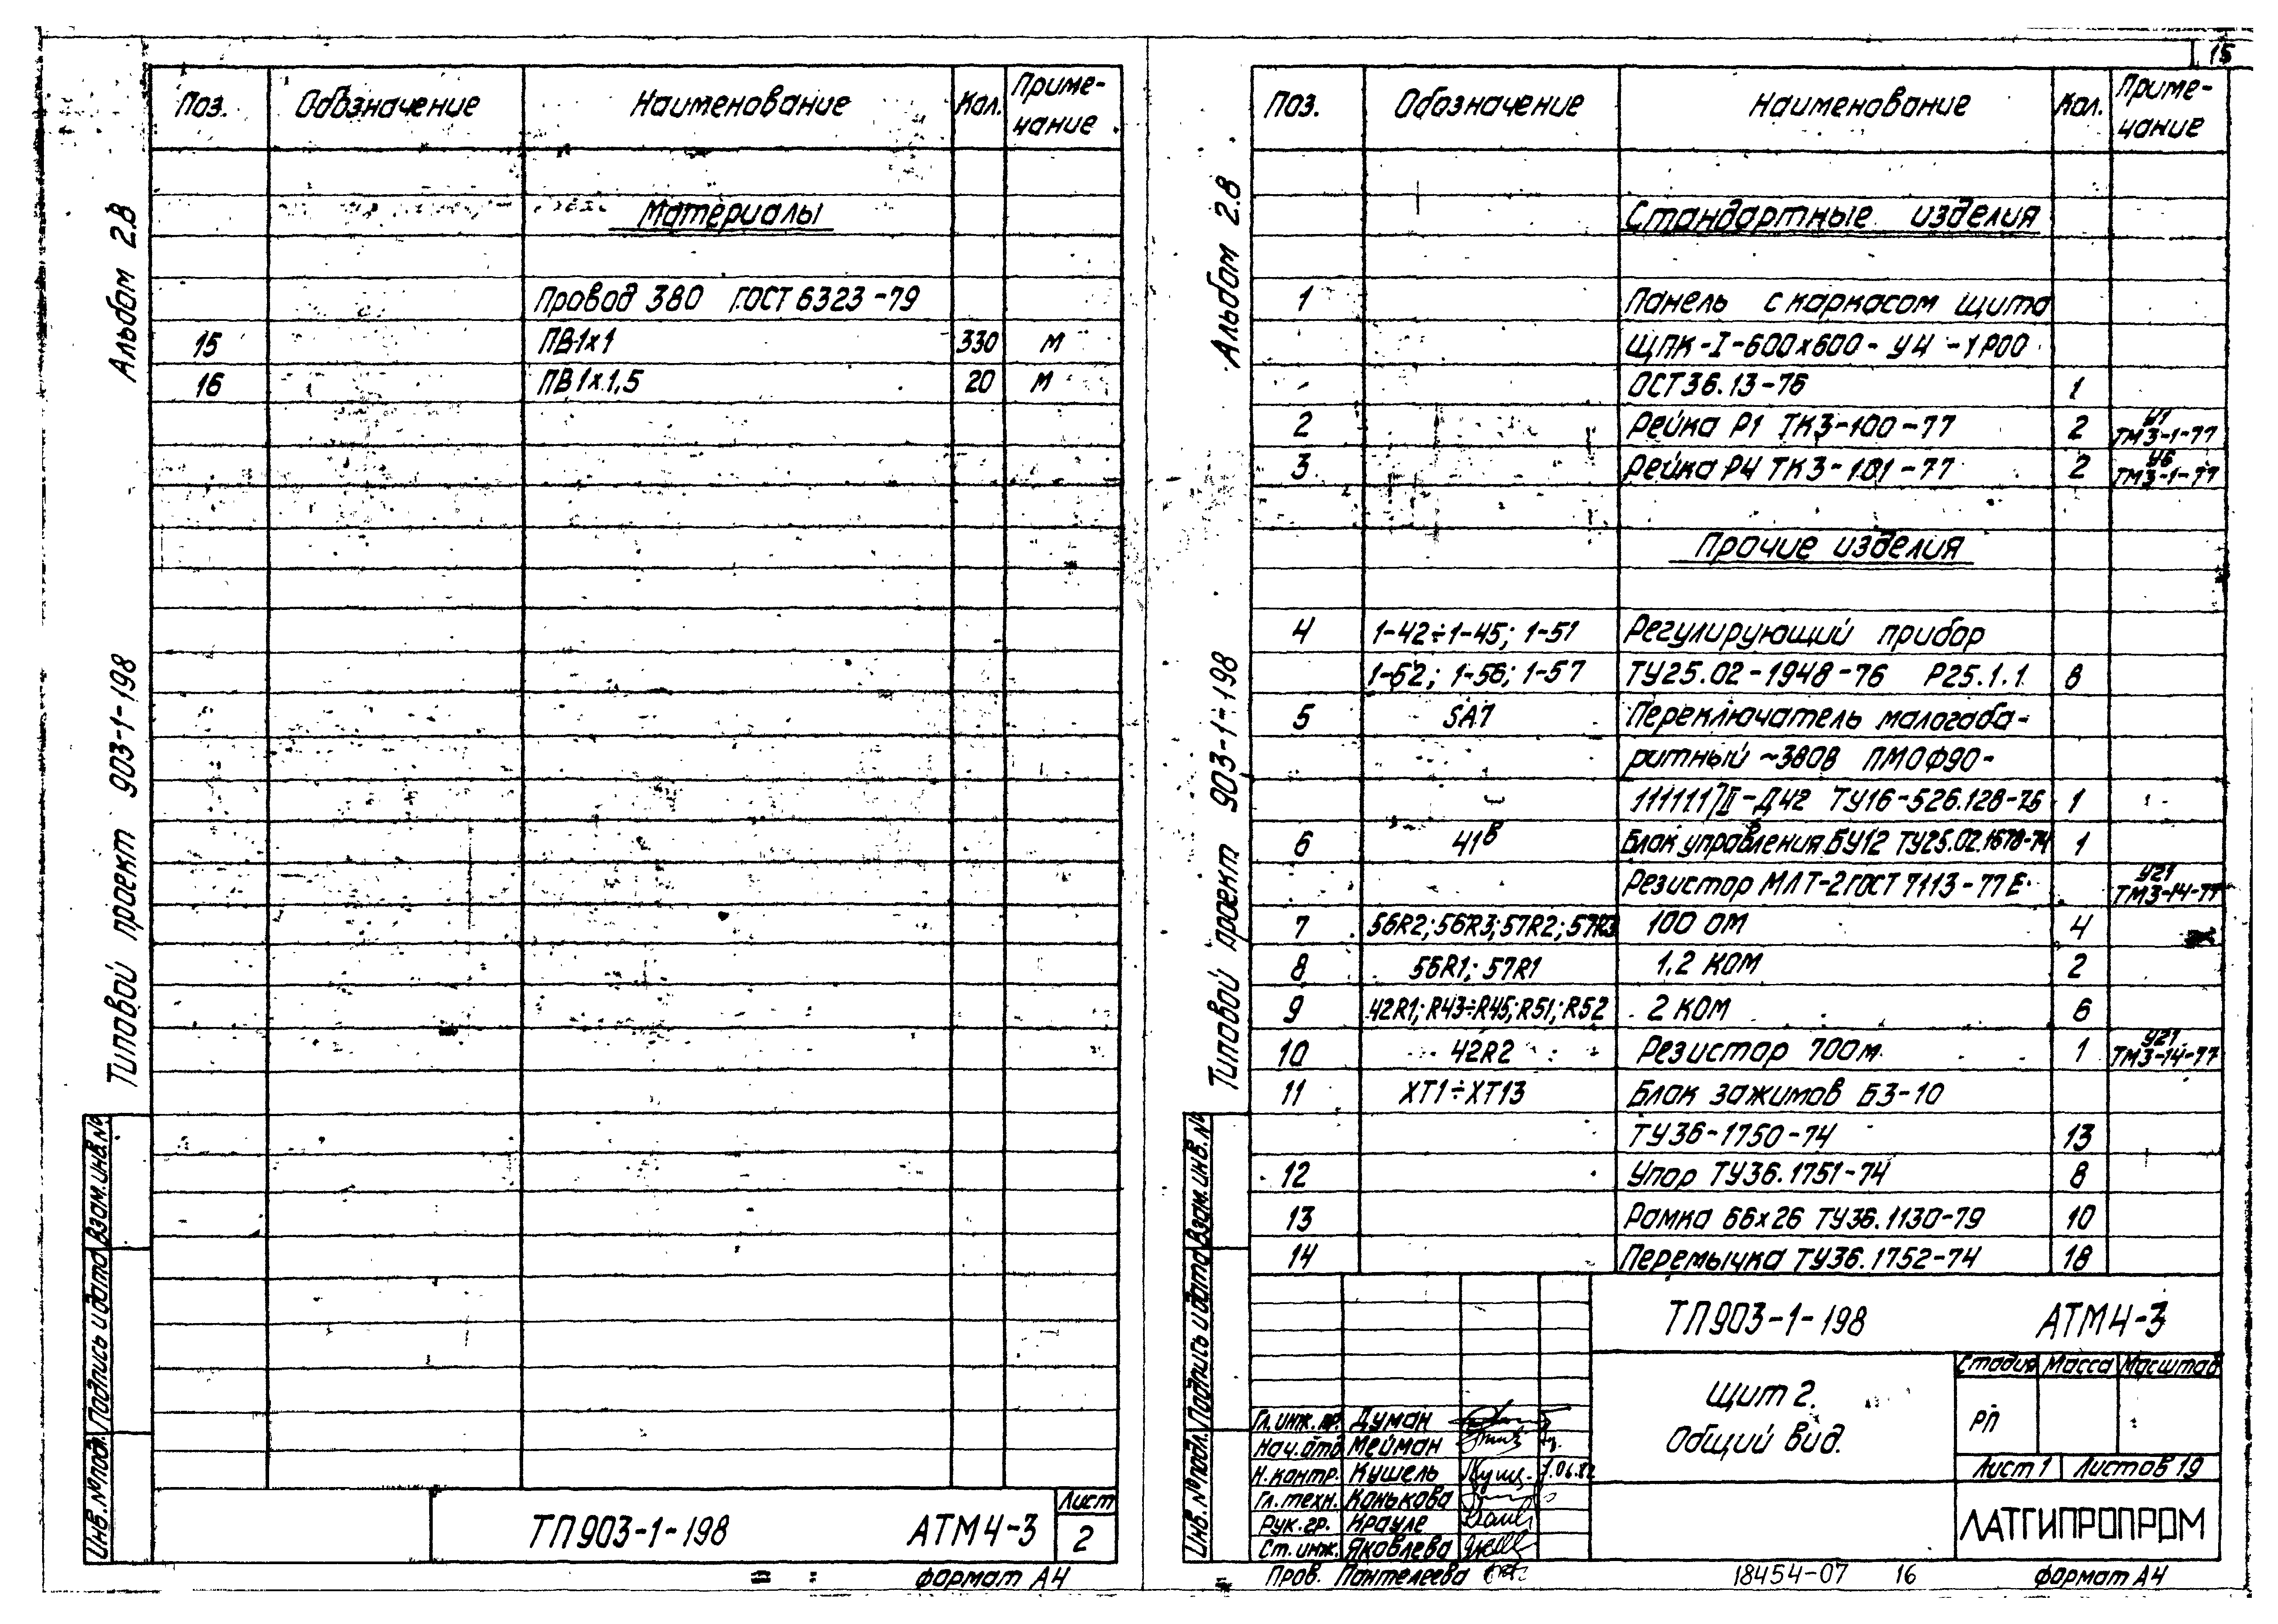 Поз. Обозначение Наименование Кол. Приме-
чание
Материалы
Провод 380 ГОСТ 6323-79
15 ПВ1х1 330 м
16 ПВ1х1,5 20 м
Альбом 2.В
Типовой проект 903-1-198
Взам.инв.№
Подпись и дата
Инв.№ подл.
ТП903-1-198 АТМ4-3
Лист
2
формат А4
15
Поз. Обозначение Наименование Кол. Приме-
чание
Стандартные изделия
1 Панель с каркасом щита
ЩПК-I-600х600-У4-1Р00
ОСТ36.13-76 1
2 Рейка Р1 ТК3-100-77 2 У1
ТМ3-1-77
3 Рейка Р4 ТК3-101-77 2 У6
ТМ3-1-77
Прочие изделия
4 1-42÷1-45; 1-51 Регулирующий прибор
1-52; 1-56; 1-57 ТУ25.02-1948-76 Р25.1.1. 8
5 SA7 Переключатель малогаба-
ритный ~380В ПМОФ90-
111111/II-Д42 ТУ16-526.128-76 1
6 41в Блок управления БУ12 ТУ25.02.1678-74 1
Резистор МЛТ-2 ГОСТ 7113-77Е У21
ТМ3-14-77
7 56R2; 56R3; 57R2; 57R3 100 ом 4
8 56R1; 57R1 1,2 ком 2
9 42R1; R43÷R45; R51; R52 2 ком 6
10 42R2 Резистор 70ом 1 У21
ТМ3-14-77
11 XT1÷XT13 Блок зажимов БЗ-10
ТУ36-1750-74 13
12 Упор ТУ36.1751-74 8
13 Рамка 66х26 ТУ36.1130-79 10
14 Перемычка ТУ36.1752-74 18
Альбом 2.В
Типовой проект 903-1-198
Взам.инв.№
Подпись и дата
Инв.№ подл.
ТП903-1-198 АТМ4-3
Щит 2.
Общий вид.
Стадия Масса Масштаб
РП
Лист 1 Листов 19
ЛАТГИПРОПРОМ
Гл.инж.пр. Думан
Нач.отд Мейман
Н.контр. Кушель
Гл.техн. Канькова
Рук.гр. Крауле
Ст.инж. Яковлева
Пров. Пантелеева
18454-07 16
формат А4